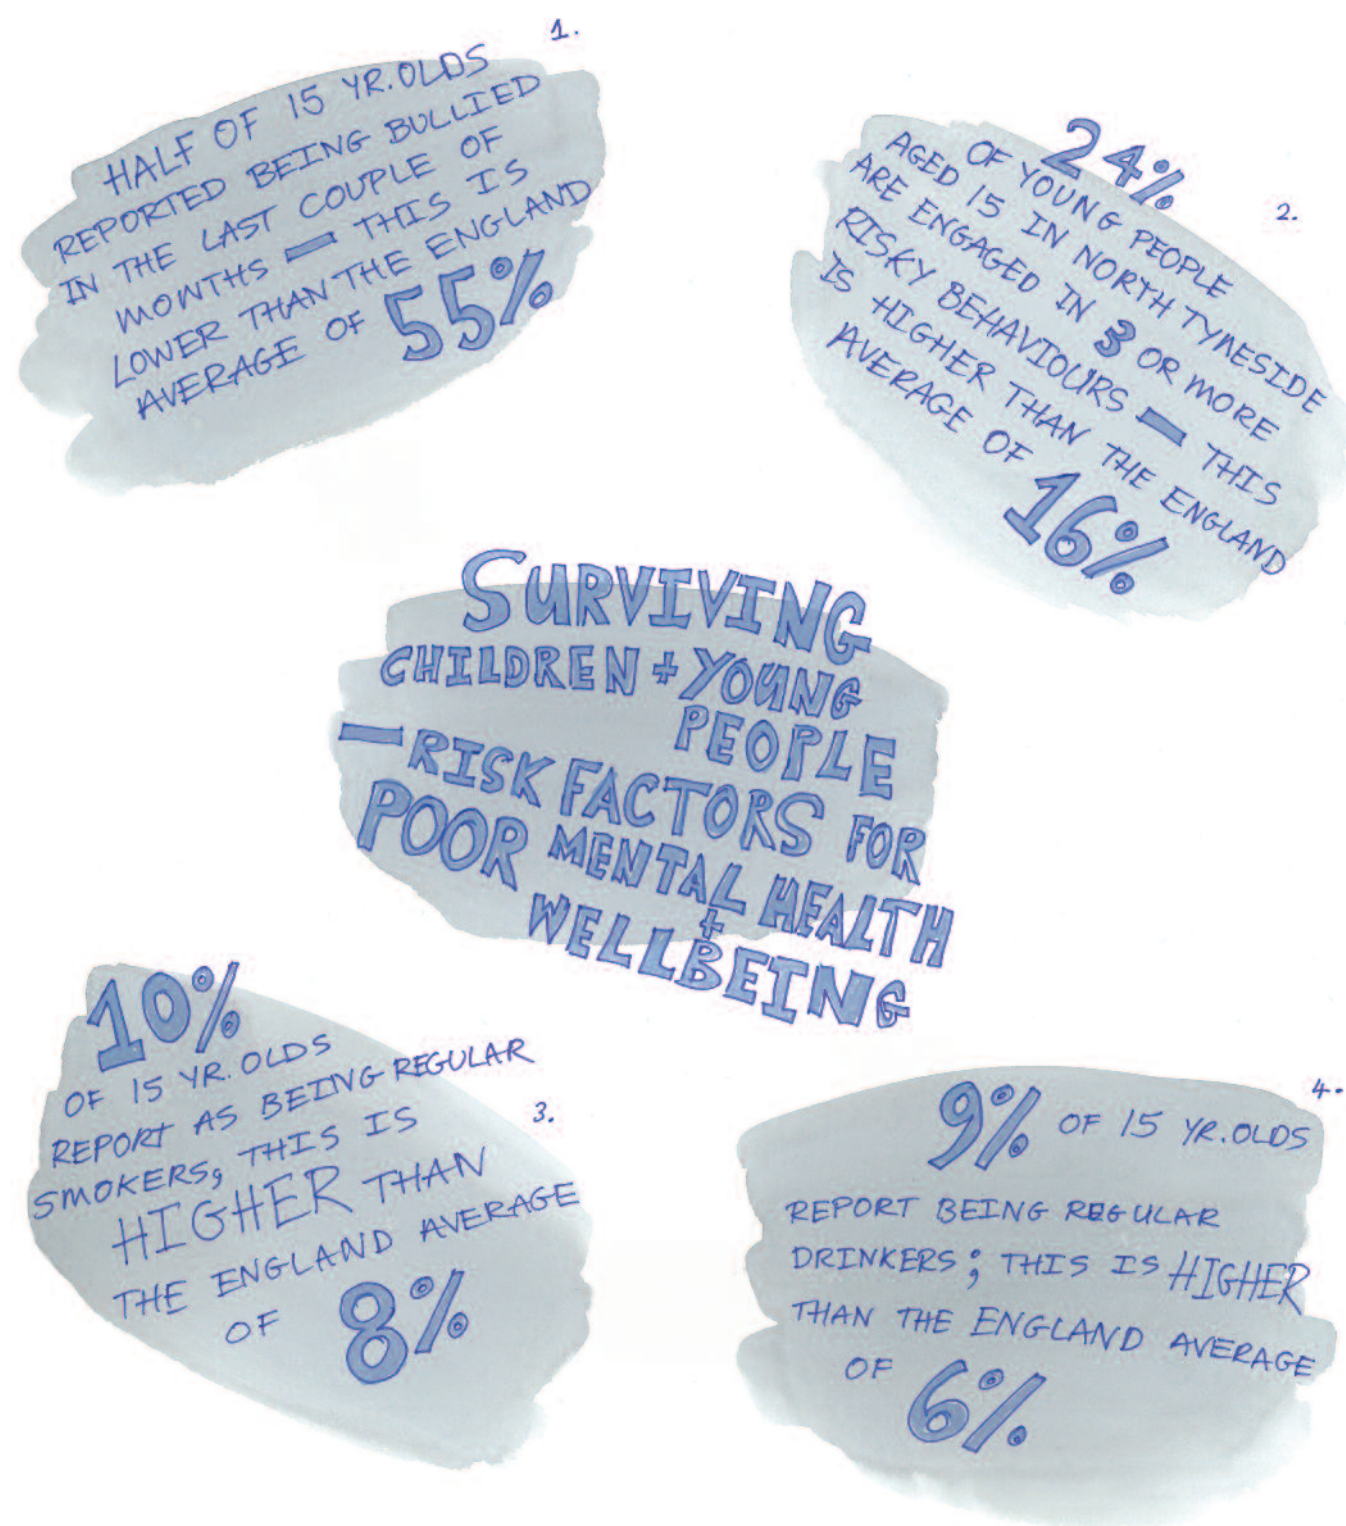 1.
HALF OF 15 YR.OLDS
REPORTED BEING BULLIED
IN THE LAST COUPLE OF
MONTHS — THIS IS
LOWER THAN THE ENGLAND
AVERAGE OF 55%
24%
OF YOUNG PEOPLE
AGED 15 IN NORTH TYNESIDE
ARE ENGAGED IN 3 OR MORE
RISKY BEHAVIOURS — THIS
IS HIGHER THAN THE ENGLAND
AVERAGE OF
16%
2.
SURVIVING
CHILDREN + YOUNG
PEOPLE
— RISK FACTORS FOR
POOR MENTAL HEALTH
+
WELLBEING
10%
OF 15 YR.OLDS
REPORT AS BEING REGULAR
SMOKERS, THIS IS
HIGHER THAN
THE ENGLAND AVERAGE
OF 8%
3.
4.
9% OF 15 YR.OLDS
REPORT BEING REGULAR
DRINKERS; THIS IS HIGHER
THAN THE ENGLAND AVERAGE
OF 6%